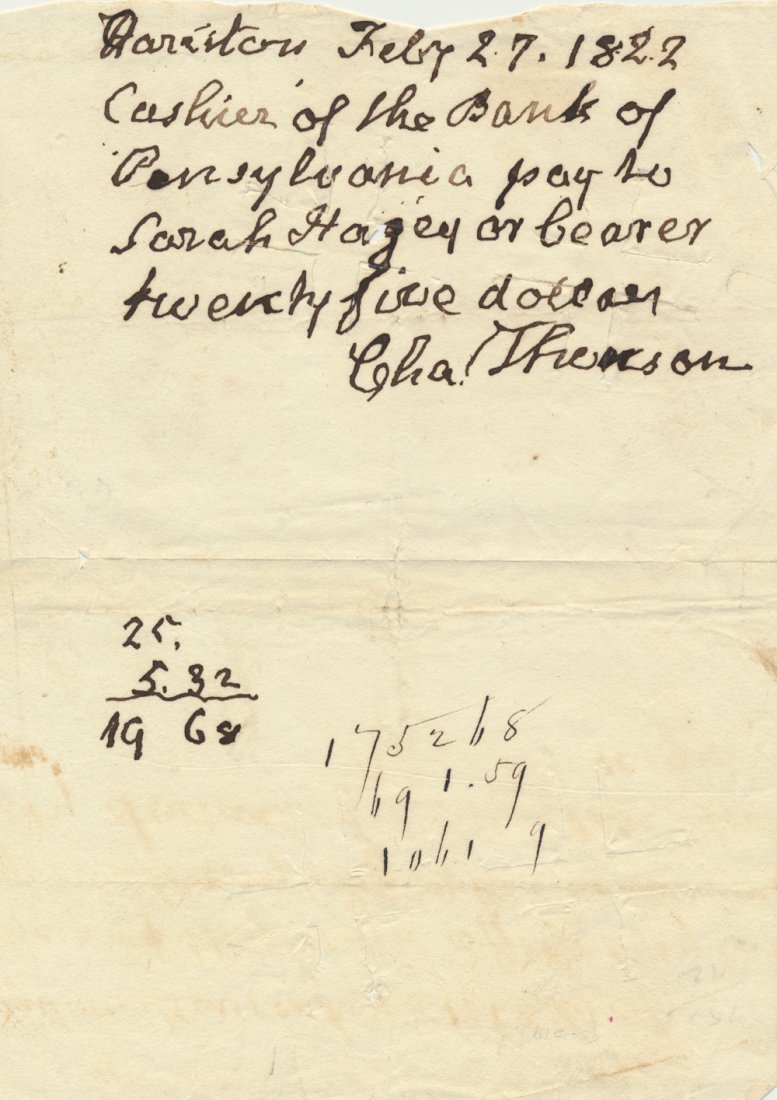 Hariton Feby 27. 1822
Cashier of the Bank of
Pensylvania pay to
Sarah Hagey or bearer
twenty five dollars
Chas. Thomson
25.
5.32
19 68
1